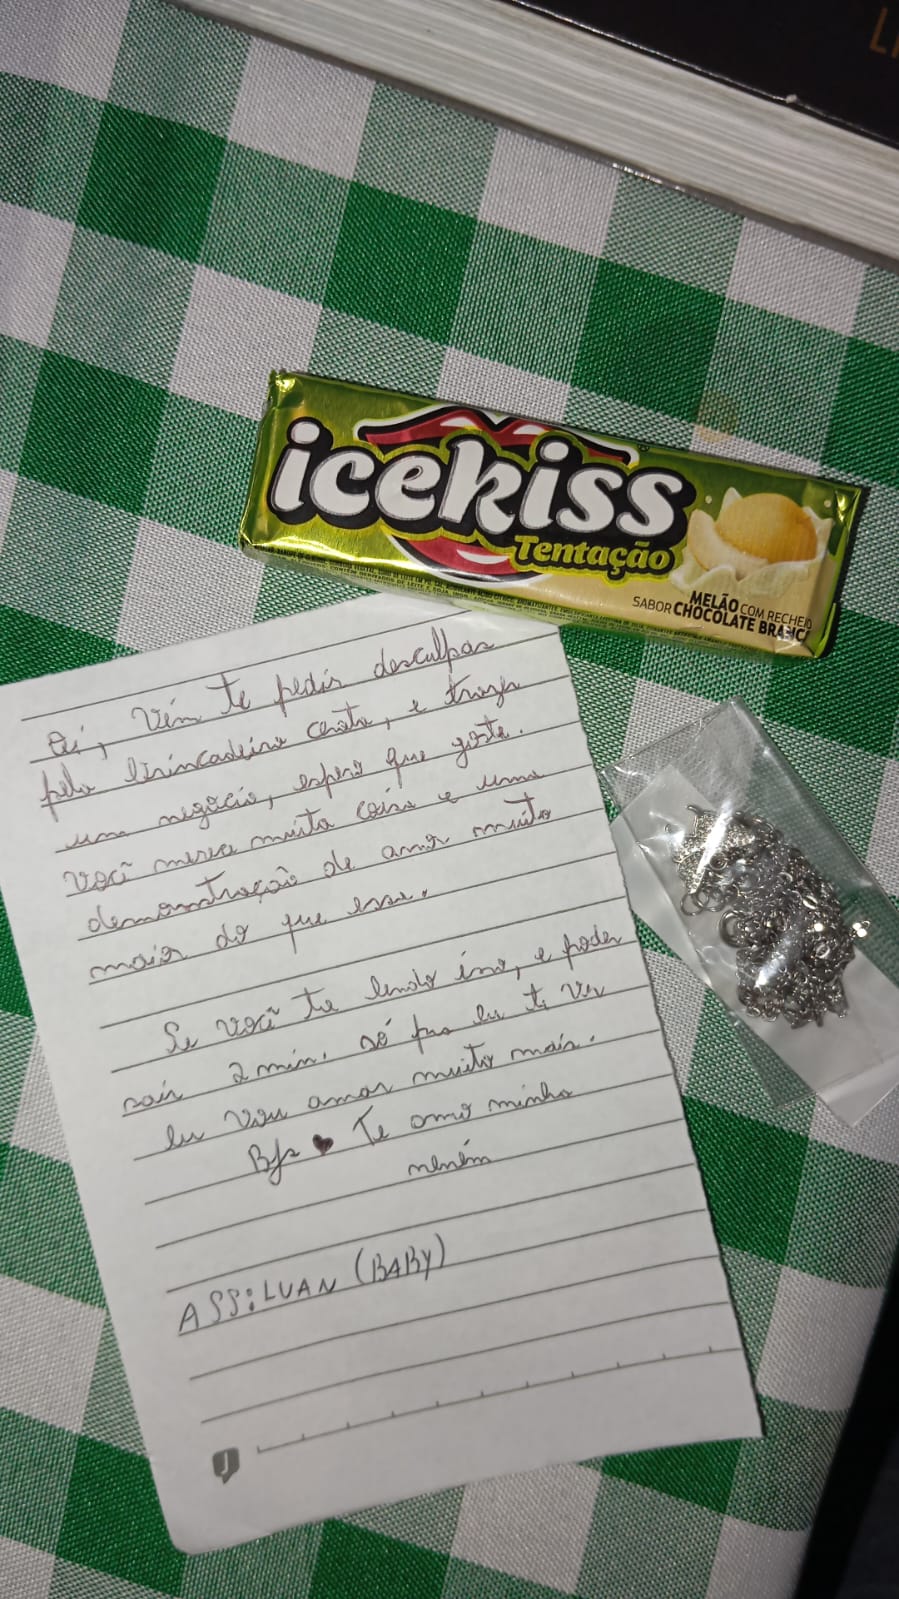 LI
icekiss
Tentação
MELÃO COM RECHEIO
SABOR CHOCOLATE BRANC
Oi, Vim te pedir desculpas
pela brincadeira chata, e trazer
um negócio, espero que goste.
você merece muita coisa e uma
demonstração de amor muito
maior do que essa.
Se você te lendo isso, e poder
sair 2 min. só pra eu te ver
eu vou amar muito mais.
Bjs Te amo minha
neném
ASS: LUAN (BABY)
J